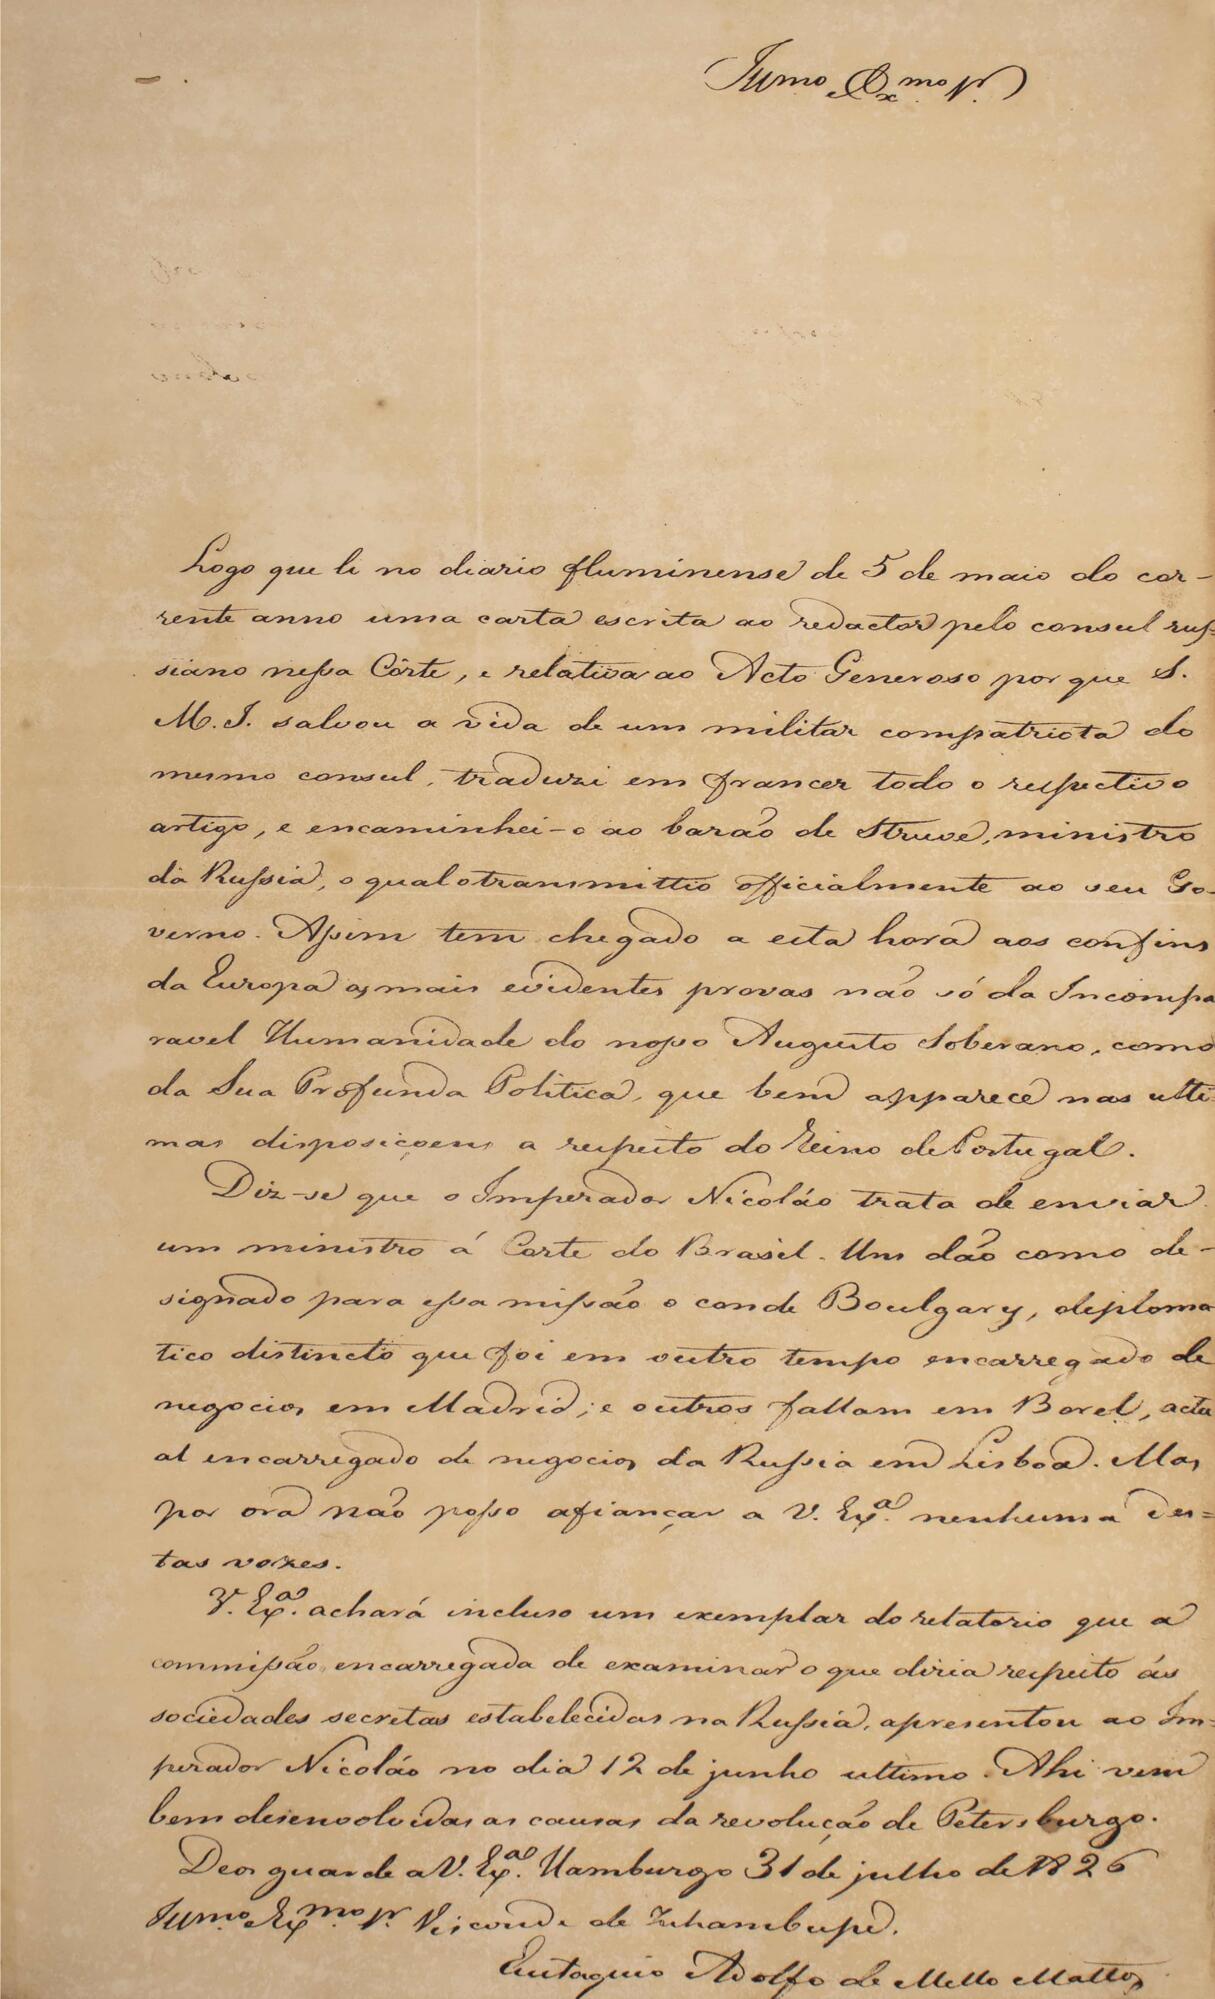 Illmo. Exmo. Sr.
Logo que li no diario fluminense de 5 de maio do cor-
rente anno uma carta escrita ao redactor pelo consul rus-
siano nessa Côrte, e relativa ao Acto Generoso por que S.
M. I. salvou a vida de um militar compatriota do
mesmo consul, traduzi em francez todo o respectivo
artigo, e encaminhei-o ao barão de Struve, ministro
da Russia, o qual o transmittio officialmente ao seu Go-
verno. Assim tem chegado a esta hora aos confins
da Europa as mais evidentes provas não só da Incompa
ravel Humanidade do nosso Augusto Soberano, como
da Sua Profunda Politica, que bem apparece nas ulti
mas disposiçoens a respeito do Reino de Portugal.
Diz-se que o Imperador Nicoláo trata de enviar
um ministro á Corte do Brasil. Uns dão como de-
signado para essa missão o conde Boulgary, diploma
tico distincto que foi em outro tempo encarregado de
negocios em Madrid; e outros fallam em Borel, actu
al encarregado de negocios da Russia em Lisboa. Mas
por ora não posso afiançar a V. Exa. nenhuma des=
tas vozes.
V. Exa. achará incluso um exemplar do relatorio que a
commissão, encarregada de examinar o que diria respeito ás
sociedades secretas estabelecidas na Russia, apresentou ao Im=
perador Nicoláo no dia 12 de junho ultimo. Ahi vem
bem desenvolvidas as causas da revolução de Petersburgo.
Deos guarde a V. Exa. Hamburgo 31 de julho de 1826
Illmo. Exmo. Sr. Visconde de Inhambupe.
Eustaquio Adolfo de Mello Mattos